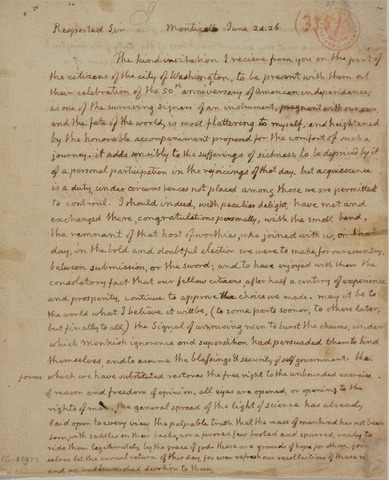 Respected Sir Monticello June 24. 26
The kind invitation I recieve from you on the part of
the citizens of the city of Washington, to be present with them at
their celebration of the 50th anniversary of American independance;
as one of the surviving signers of an instrument, pregnant with our own
and the fate of the world, is most flattering to myself, and heightened
by the honorable accompaniment proposed for the comfort of such a
journey. it adds sensibly to the sufferings of sickness, to be deprived by it
of a personal participation in the rejoicings of that day. but acquiescence
is a duty, under circumstances not placed among those we are permitted
to controul. I should, indeed, with peculiar delight, have met and
exchanged there, congratulations personally, with the small band,
the remnant of that host of worthies, who joined with us, on that
day, in the bold and doubtful election we were to make for our country,
between submission, or the sword; and to have enjoyed with them the
consolatory fact that our fellow citizens after half a century of experience
and prosperity, continue to approve the choice we made. may it be to
the world what I believe it will be, (to some parts sooner, to others later,
but finally to all,) the Signal of arousing men to burst the chains, under
which Monkish ignorance and superstition had persuaded them to bind
themselves and to assume the blessings & security of self government. the
form
which we have substituted restores the free right to the unbounded exercise
of reason and freedom of opinion. all eyes are opened, or opening to the
rights of man. the general spread of the light of science has already
laid open to every view the palpable truth that the mass of mankind has not been
born, with saddles on their backs, nor a favored few booted and spurred, ready to
ride them legitimately, by the grace of god. these are grounds of hope for others. for our
selves let the annual return of this day, for ever refresh our recollections of these rights
and an undiminished devotion to them.